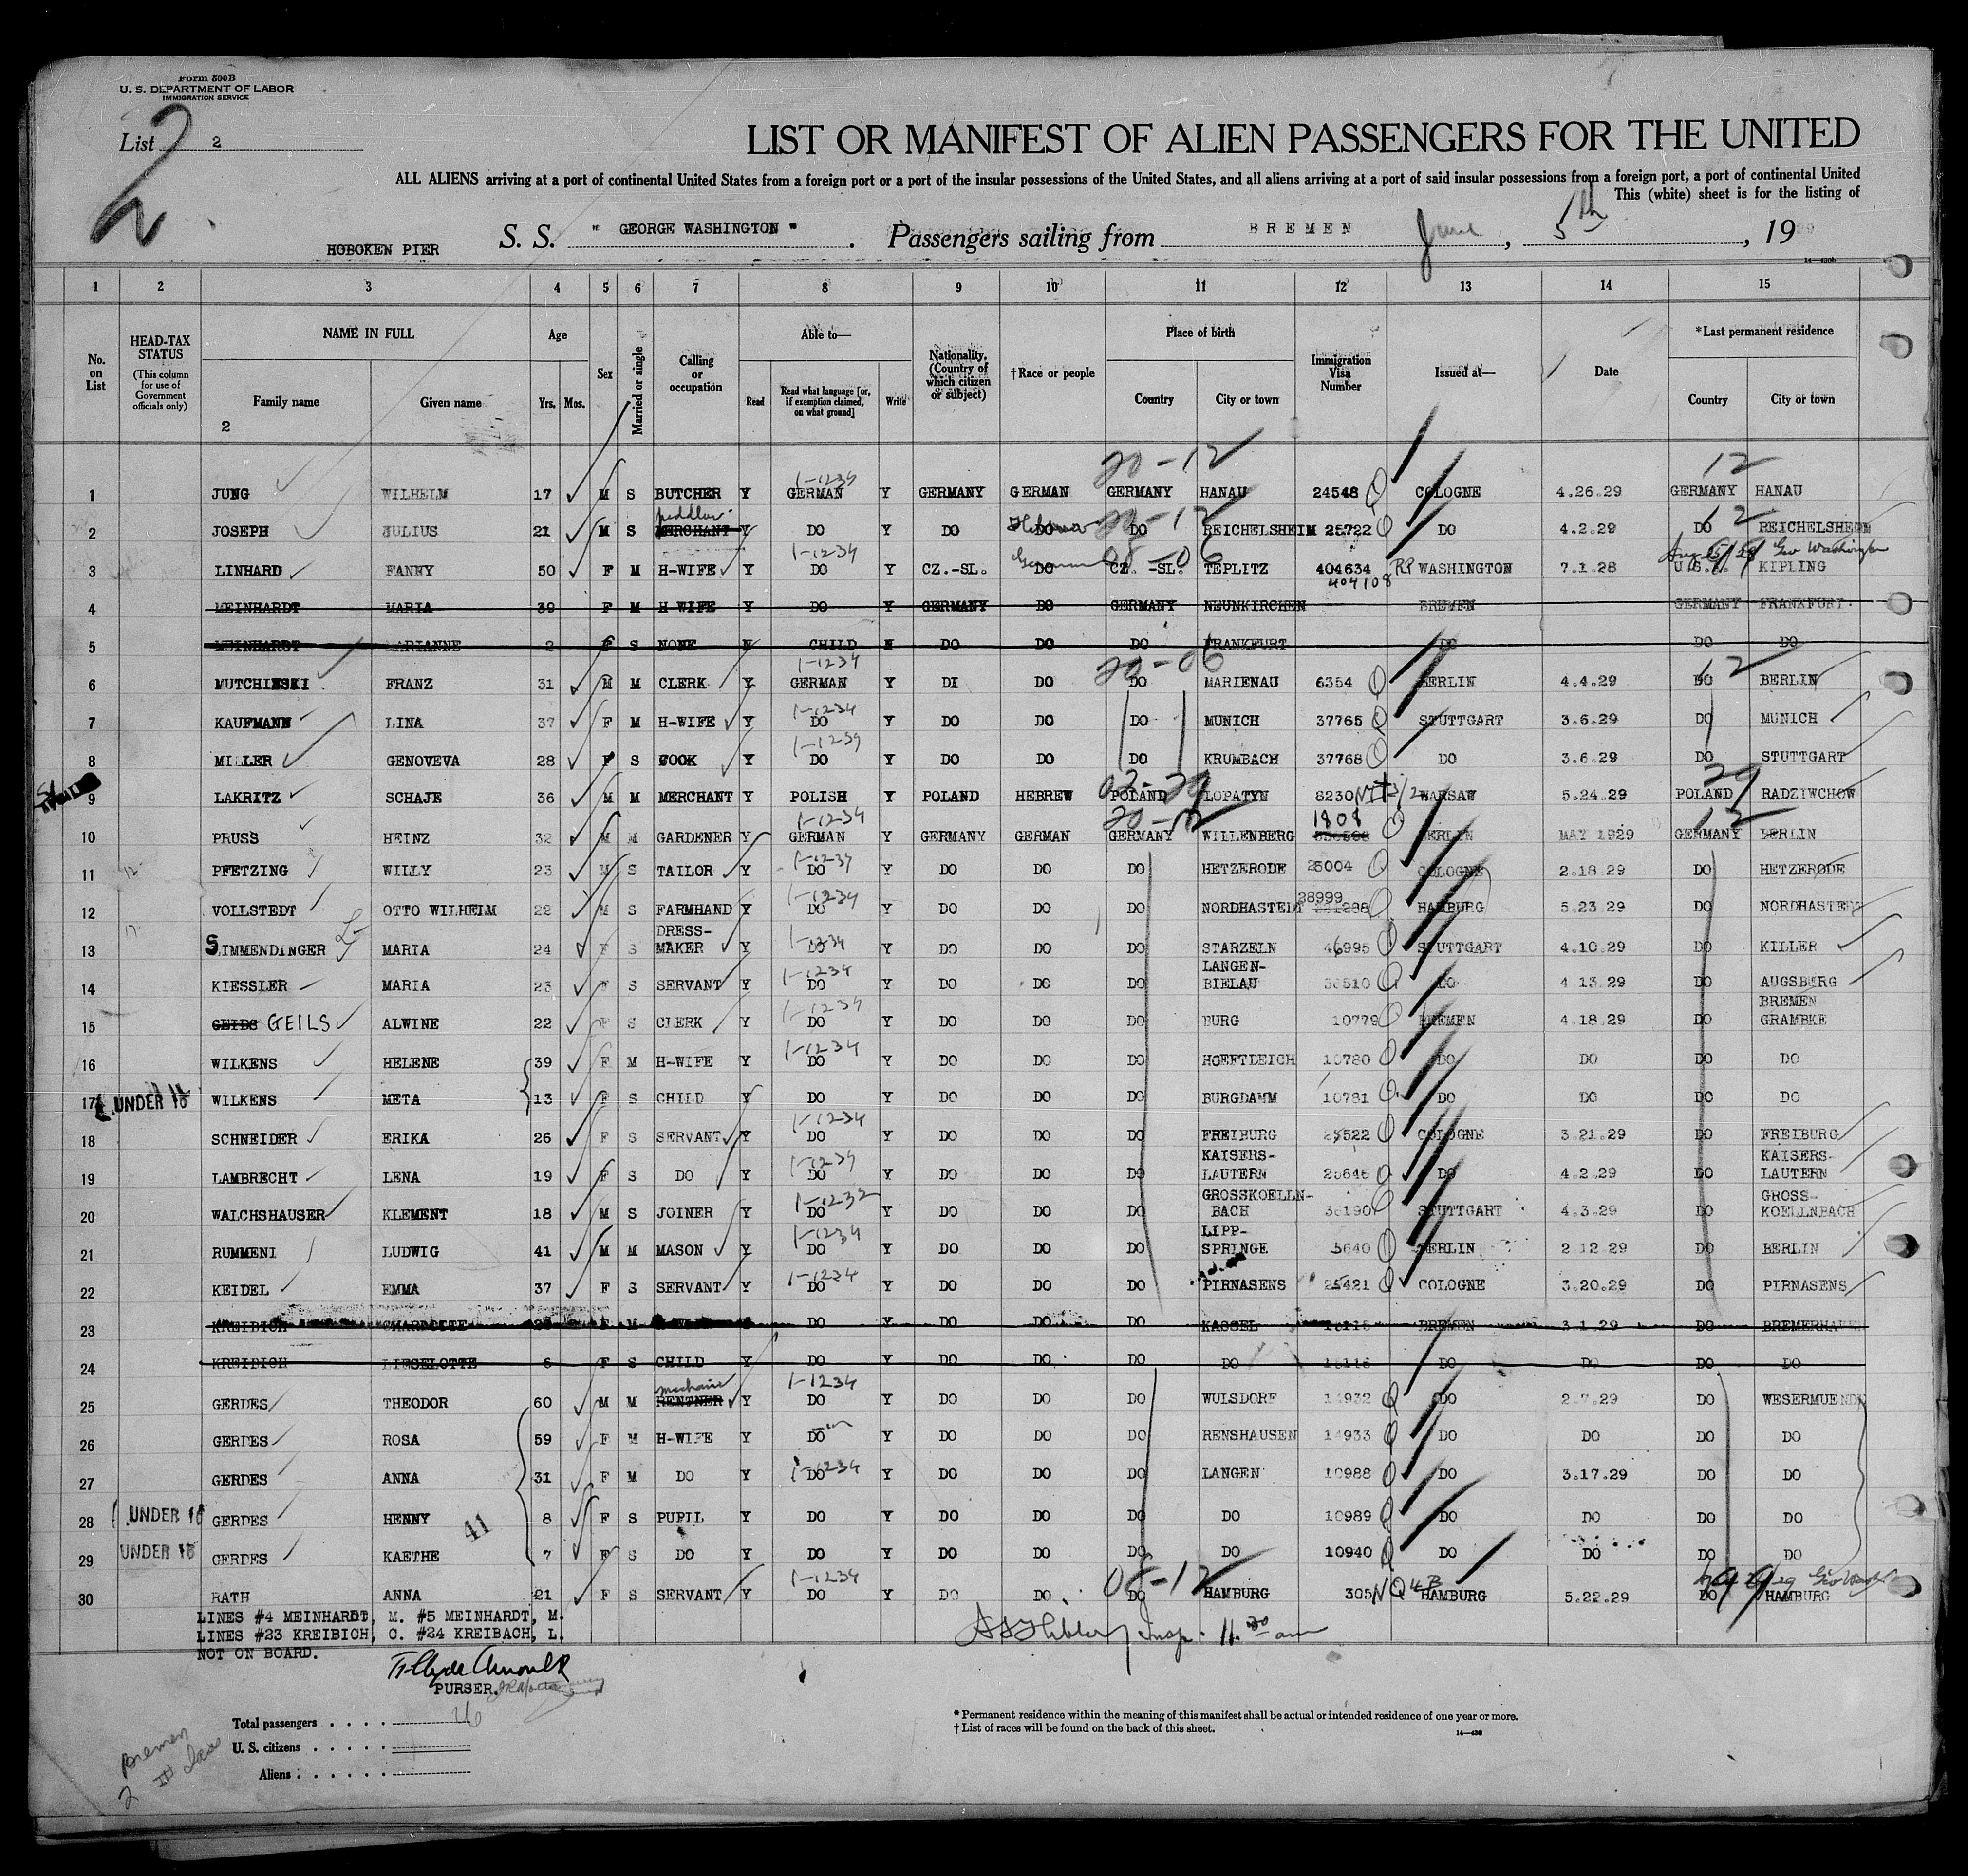 Form 500B
U. S. DEPARTMENT OF LABOR
IMMIGRATION SERVICE
List 2
2
LIST OR MANIFEST OF ALIEN PASSENGERS FOR THE UNITED
ALL ALIENS arriving at a port of continental United States from a foreign port or a port of the insular possessions of the United States, and all aliens arriving at a port of said insular possessions from a foreign port, a port of continental United
This (white) sheet is for the listing of
HOBOKEN PIER S. S. " GEORGE WASHINGTON ". Passengers sailing from BREMEN June, 5th, 19
14—430b
1 2 3 4 5 6 7 8 9 10 11 12 13 14 15
No. on List HEAD-TAX STATUS (This column for use of Government officials only) NAME IN FULL Family name Given name Age Yrs. Mos. Sex Married or single Calling or occupation Able to— Read Read what language [or, if exemption claimed, on what ground] Write Nationality. (Country of which citizen or subject) †Race or people Place of birth Country City or town Immigration Visa Number Issued at— Date *Last permanent residence Country City or town
2
20-12 12
1-1234
1 JUNG WILHELM 17 M S BUTCHER Y GERMAN Y GERMANY GERMAN GERMANY HANAU 24548 COLOGNE 4.26.29 GERMANY HANAU
peddler 20-12 12
2 JOSEPH JULIUS 21 M S MERCHANT Y DO Y DO DO Hebrew DO REICHELSHEIM 25722 DO 4.2.29 DO REICHELSHEIM
1-1234 German 08-06 Geo Washington
3 LINHARD FANNY 50 F M H-WIFE Y DO Y CZ.-SL. DO CZ.-SL. TEPLITZ 404634 RP WASHINGTON 7.1.28 U.S. KIPLING
404108
4 MEINHARDT MARIA 30 F M H-WIFE Y DO Y GERMANY DO GERMANY NEUNKIRCHEN BREMEN GERMANY FRANKFURT
5 MEINHARDT MARIANNE 2 F S NONE N CHILD N DO DO DO FRANKFURT DO DO DO
1-1234 20-06 12
6 MUTCHINSKI FRANZ 31 M M CLERK Y GERMAN Y DI DO DO MARIENAU 6354 BERLIN 4.4.29 DO BERLIN
1-1234
7 KAUFMANN LINA 37 F M H-WIFE Y DO Y DO DO DO MUNICH 37765 STUTTGART 3.6.29 DO MUNICH
1-1234
8 MILLER GENOVEVA 28 F S COOK Y DO Y DO DO DO KRUMBACH 37768 DO 3.6.29 DO STUTTGART
29
9 LAKRITZ SCHAJE 36 M M MERCHANT Y POLISH Y POLAND HEBREW POLAND LOPATYN 8230 WARSAW 5.24.29 POLAND RADZIWCHOW
1-1234 20-12 1808 12
10 PRUSS HEINZ 32 M M GARDENER Y GERMAN Y GERMANY GERMAN GERMANY WILLENBERG BERLIN MAY 1929 GERMANY BERLIN
1-1234
11 PFETZING WILLY 23 M S TAILOR Y DO Y DO DO DO HETZERODE 25004 COLOGNE 2.18.29 DO HETZERODE
1-1234 38999
12 VOLLSTEDT OTTO WILHELM 22 M S FARMHAND Y DO Y DO DO DO NORDHASTEDT HAMBURG 5.23.29 DO NORDHASTEDT
DRESS-
13 SIMMENDINGER MARIA 24 F S MAKER Y DO 1-1234 Y DO DO DO STARZELN 46995 STUTTGART 4.10.29 DO KILLER
1-1234 LANGEN-
14 KIESSLER MARIA 23 F S SERVANT Y DO Y DO DO DO BIELAU 36510 DO 4.13.29 DO AUGSBURG
1-1234 BREMEN
15 GEIDS GEILS ALWINE 22 F S CLERK Y DO Y DO DO DO BURG 10779 BREMEN 4.18.29 DO GRAMBKE
1-1234
16 WILKENS HELENE 39 F M H-WIFE Y DO Y DO DO DO HOEFTDEICH 10780 DO DO DO DO
17 UNDER 16 WILKENS META 13 F S CHILD Y DO Y DO DO DO BURGDAMM 10781 DO DO DO DO
1-1234
18 SCHNEIDER ERIKA 26 F S SERVANT Y DO Y DO DO DO FREIBURG 25522 COLOGNE 3.21.29 DO FREIBURG
1-1234 KAISERS- KAISERS-
19 LAMBRECHT LENA 19 F S DO Y DO Y DO DO DO LAUTERN 25646 DO 4.2.29 DO LAUTERN
1-1232 GROSSKOELLN- GROSS-
20 WALCHSHAUSER KLEMENT 18 M S JOINER Y DO Y DO DO DO BACH 36190 STUTTGART 4.3.29 DO KOELLNBACH
1-1234 LIPP-
21 RUMMENI LUDWIG 41 M M MASON Y DO Y DO DO DO SPRINGE 5640 BERLIN 2.12.29 DO BERLIN
1-1234
22 KEIDEL EMMA 37 F S SERVANT Y DO Y DO DO DO PIRNASENS 25421 COLOGNE 3.20.29 DO PIRNASENS
23 KREIDICH CHARLOTTE F M DO Y DO DO DO KASSEL BREMEN 3.1.29 DO BREMERHAVEN
24 KREIDICH LIESELOTTE 6 F S CHILD Y DO Y DO DO DO DO DO DO DO DO
mechanic 1-1234
25 GERDES THEODOR 60 M M RENTNER Y DO Y DO DO DO WULSDORF 14932 DO 2.7.29 DO WESERMUENDE
26 GERDES ROSA 59 F M H-WIFE Y DO Y DO DO DO RENSHAUSEN 14933 DO DO DO DO
27 GERDES ANNA 31 F M DO Y DO 1-1234 Y DO DO DO LANGEN 10988 DO 3.17.29 DO DO
28 UNDER 16 GERDES HENNY 41 8 F S PUPIL Y DO Y DO DO DO DO 10989 DO DO DO DO
29 UNDER 16 GERDES KAETHE 7 F S DO Y DO Y DO DO DO DO 10940 DO DO DO DO
1-1234 08-12
30 RATH ANNA 21 F S SERVANT Y DO Y DO DO DO HAMBURG 305 NQ HAMBURG 5.22.29 DO HAMBURG
LINES #4 MEINHARDT, M. #5 MEINHARDT, M.
LINES #23 KREIBICH, C. #24 KREIBACH, L.
NOT ON BOARD.
Insp. 11.30 am
PURSER.
Total passengers . . . . 26
U. S. citizens . . . . .
Aliens . . . . . .
* Permanent residence within the meaning of this manifest shall be actual or intended residence of one year or more.
† List of races will be found on the back of this sheet.
14—430
Bremen
2